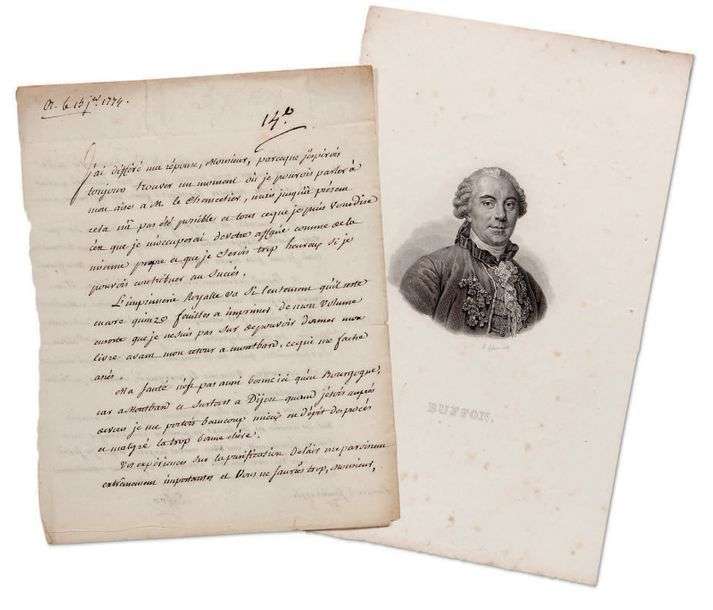 R. le 15 jer 1774.
14e
J'ai différé ma réponse, Monsieur, parceque j'espérois
toujours trouver un moment où je pourois parler à
mon aise à M. le Chancelier, mais jusqu'à présent
cela n'a pas été possible et tout ceque je puis vous dire
c'est que je m'occuperai de votre affaire comme de la
mienne propre et que je serois trop heureux si je
pouvois contribuer au succès.
L'imprimerie Royalle va si lentement qu'il reste
encore quinze feuilles a imprimer de mon volume
ensorte que je ne suis pas sur de pouvoir donner mon
livre avant mon retour a montbard, ce qui me fache
assés.
Ma santé n'est pas aussi bonne ici qu'en Bourgogne,
car a Montbard et surtout a Dijon quand j'étois auprès
de vous je me portois beaucoup mieux en dépit du procès
et malgré la trop bonne chère.
Vos expériences sur la purification de l'air me paroissent
extrèmement importantes et Vous ne sauriés trop, Monsieur,
BUFFON.